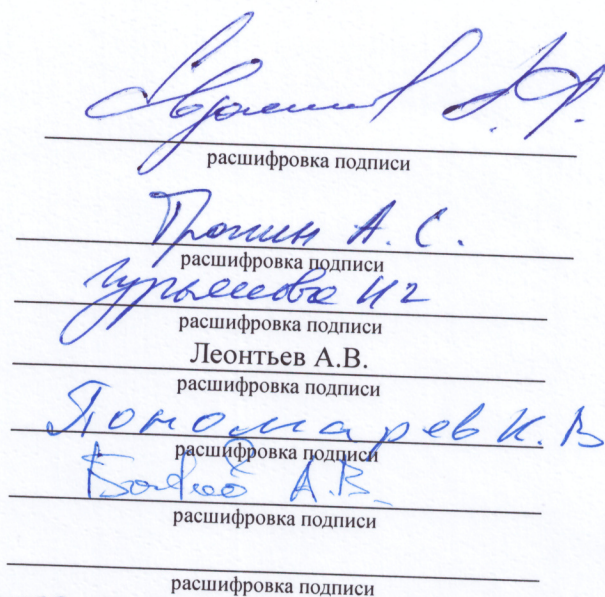 расшифровка подписи
Тронин А. С.
расшифровка подписи
расшифровка подписи
Леонтьев А.В.
расшифровка подписи
Пономарев К. В
расшифровка подписи
А.В.
расшифровка подписи
расшифровка подписи